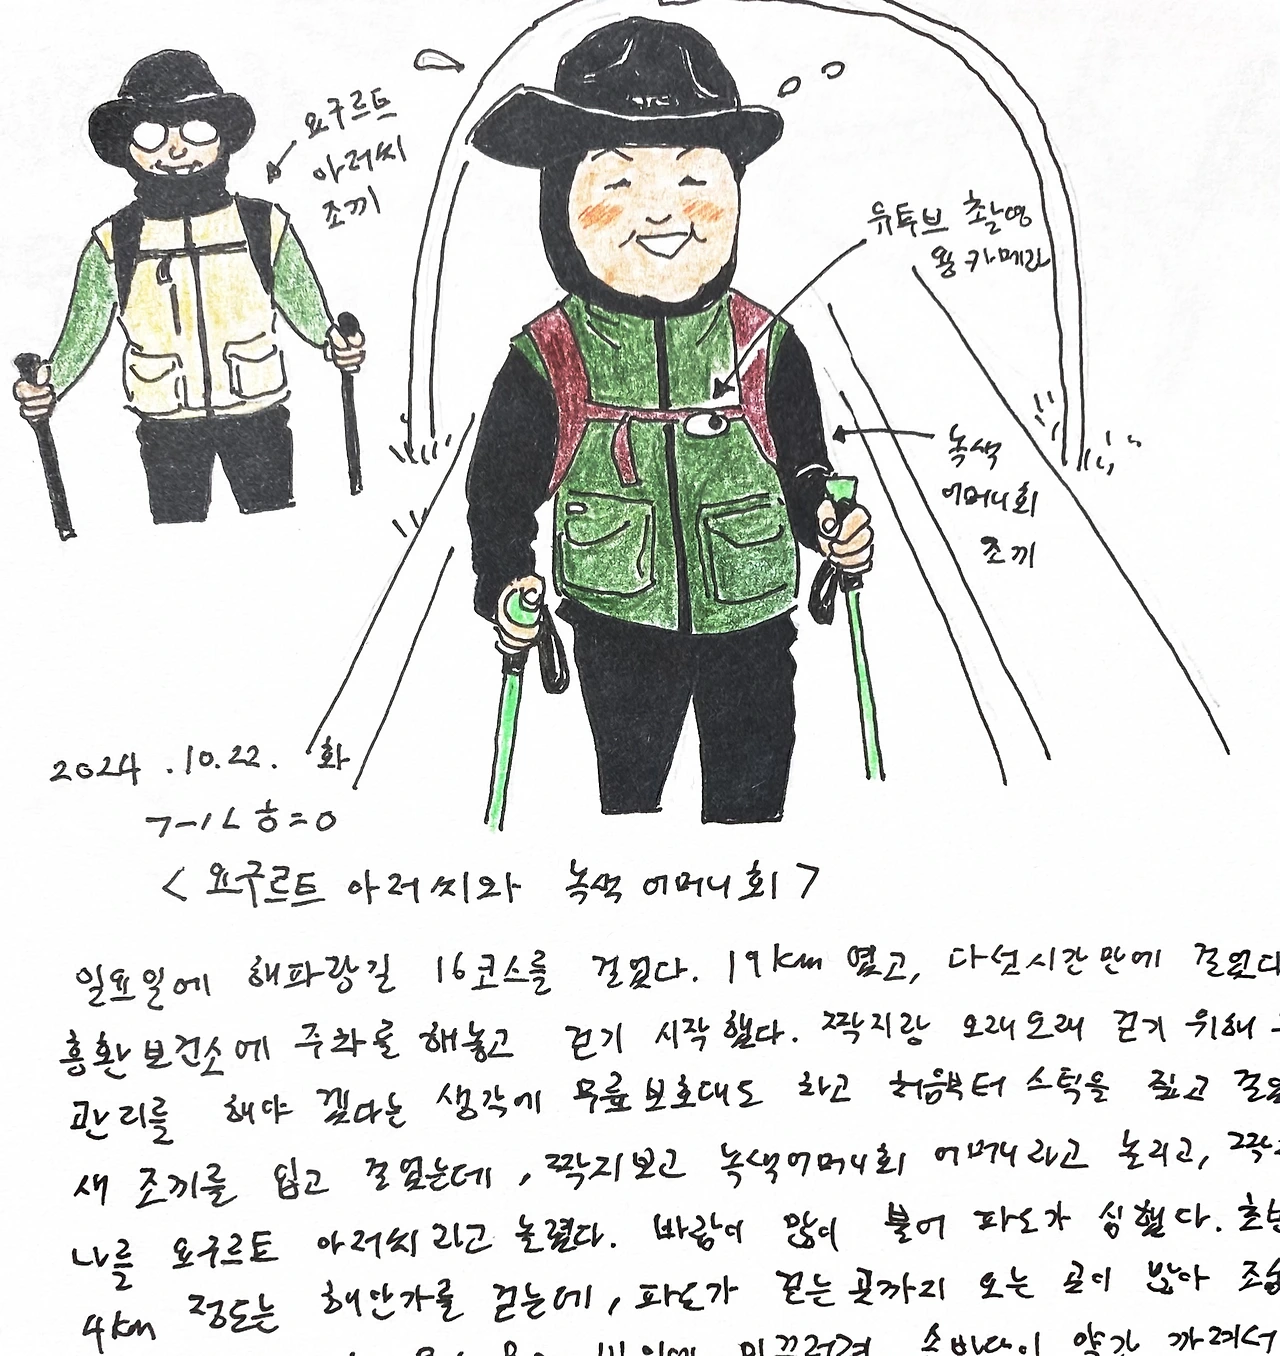 요구르트
아저씨
조끼
유투브 촬영
용 카메라
녹색
어머니회
조끼
2024. 10. 22. 화
< 요구르트 아저씨와 녹색 어머니회 >
일요일에 해파랑길 16코스를 걸었다. 19km 였고, 다섯시간 만에 걸었다
흥환보건소에 주차를 해놓고 걷기 시작했다. 짝지랑 오래오래 걷기 위해
관리를 해야 겠다는 생각에 무릎보호대도 하고 처음부터 스틱을 짚고
새 조끼를 입고 걸었는데, 짝지보고 녹색어머니회 어머니라고 놀리고,
나를 요구르트 아저씨라고 놀렸다. 바람이 많이 불어 파도가 심했다.
4km 정도는 해안가를 걷는데, 파도가 걷는 곳까지 오는 곳이 많아
미끄러져 손바닥이 약간 까져서